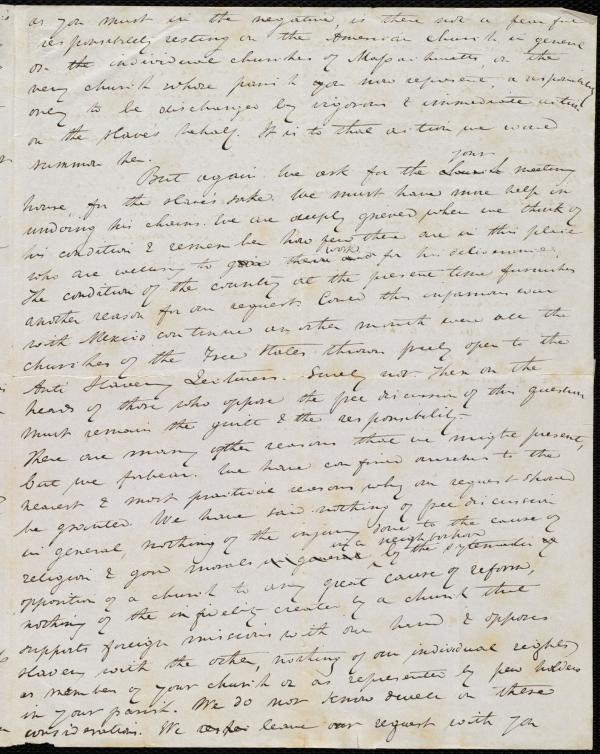 as you must in the negative, is there not a fearful
responsibility resting on the American church in general
on the individual churches of Massachusetts, on the
very church whose parish you now represent, a responsibility
only to be discharged by vigorous & immediate action
on the slaves behalf. It is to that action we would
summon her.
your
But again. We ask for the meeting
house, for the slaves sake. We must have more help in
undoing his chains. We are deeply grieved when we think of
his condition & remember how few there are in this place
who are willing to work for his deliverance.
The condition of the country at the present time furnishes
another reason for our request. Could this infamous war
with Mexico continue another month were all the
churches of the Free States thrown freely open to the
Anti Slavery Lecturers. Surely not. Then on the
heads of those who oppose the free discussion of this question
must remain the guilt & the responsibility.
There are many other reasons that we might present,
but we forbear. We have confined ourselves to the
nearest & most practical reasons why our request should
be granted. We have said nothing of free discussion
in general, nothing of the injury done to the cause of
in a neighborhood
religion & good morals in general by the systematic
opposition of a church to any great cause of reform,
nothing of the infidelity created by a church that
supports foreign missions with one hand & opposes
slavery with the other, nothing of our individual rights
as members of your church or as represented by pew holders
in your parish. We do not know dwell on these
considerations. We leave our request with you